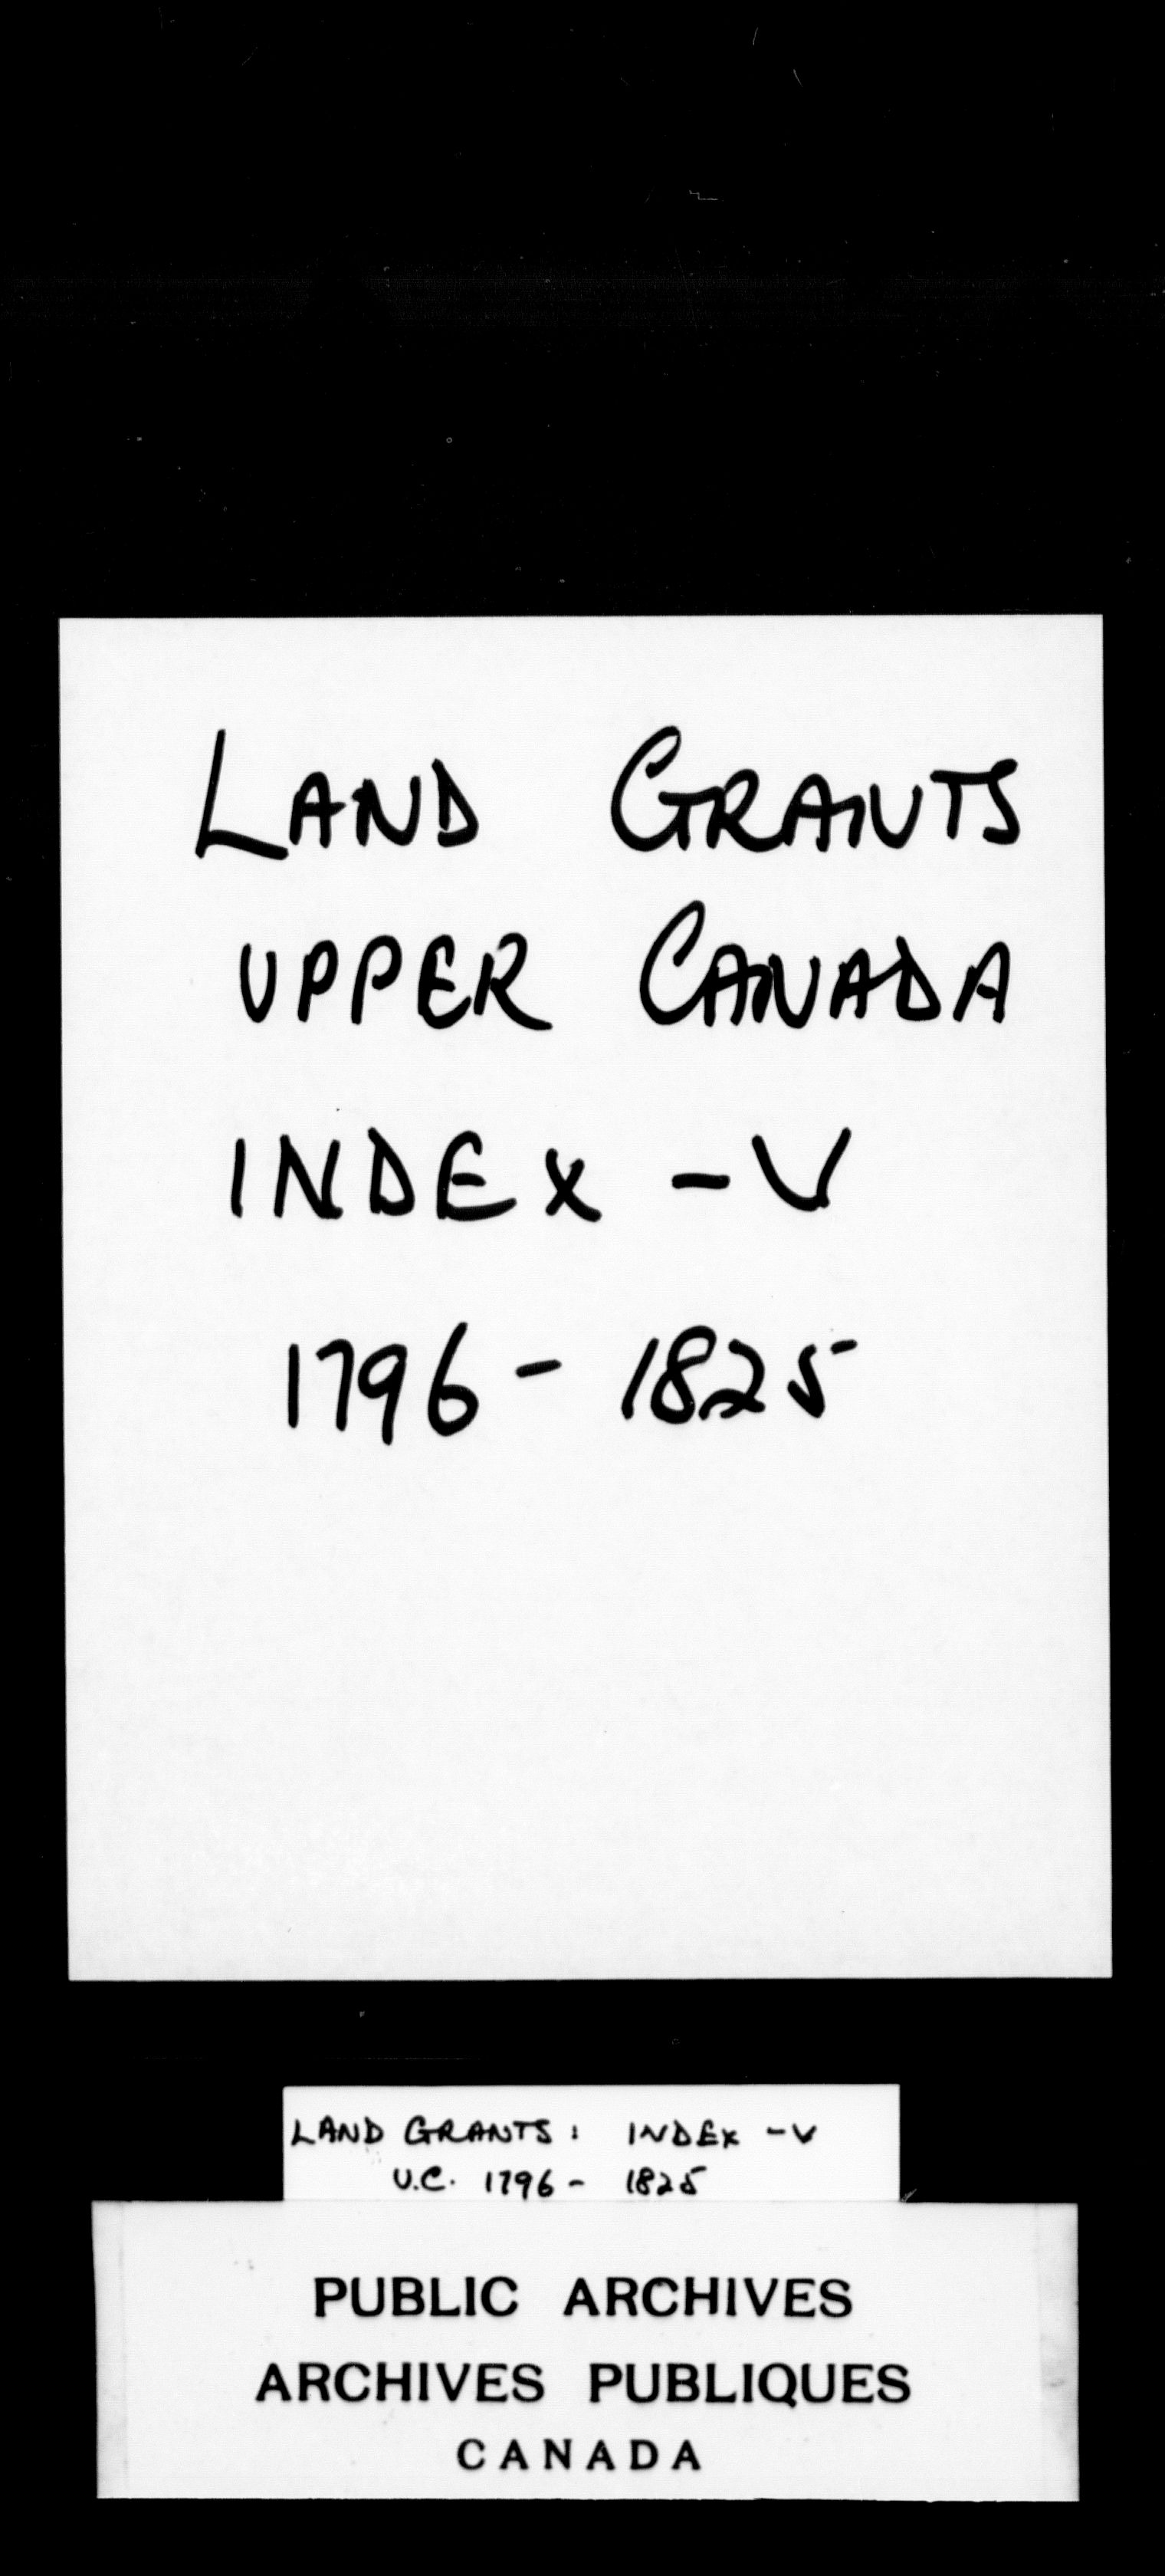 LAND GRANTS
UPPER CANADA
INDEX - V
1796 - 1825
LAND GRANTS: INDEX - V
U.C. 1796 - 1825
PUBLIC ARCHIVES
ARCHIVES PUBLIQUES
CANADA